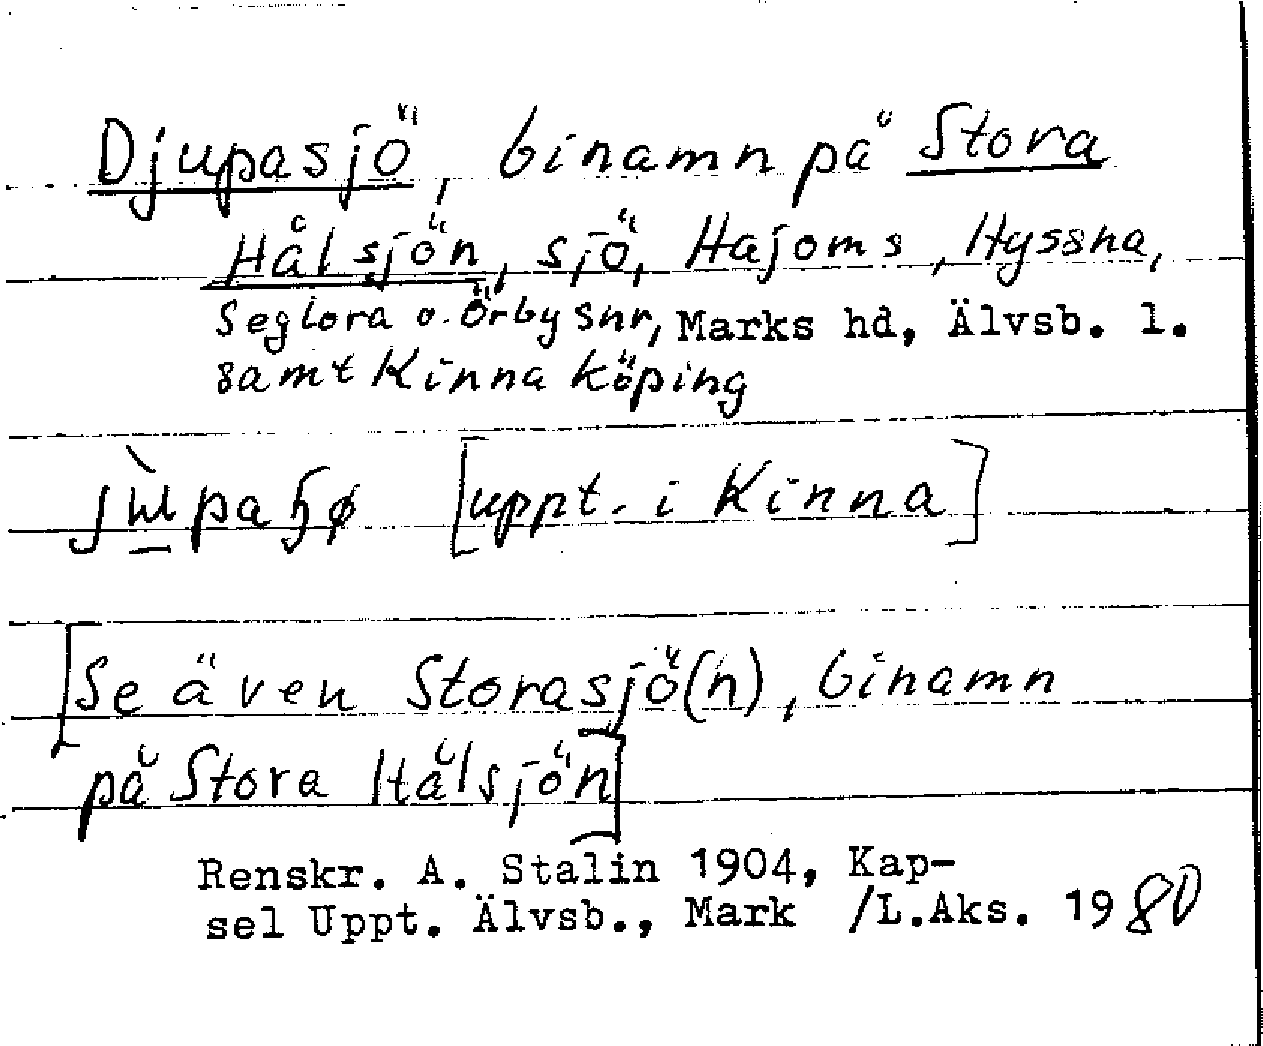 Djupasjö, binamn på Stora
Hålsjön, sjö, Hajoms, Hyssna,
Seglora o. Örby snr, Marks hd, Älvsb. l.
samt Kinna köping
[uppt. i Kinna]
[Se även Storasjö(n), binamn
på Stora Hålsjön]
Renskr. A. Stalin 1904, Kap-
sel Uppt. Älvsb., Mark /L.Aks. 1980